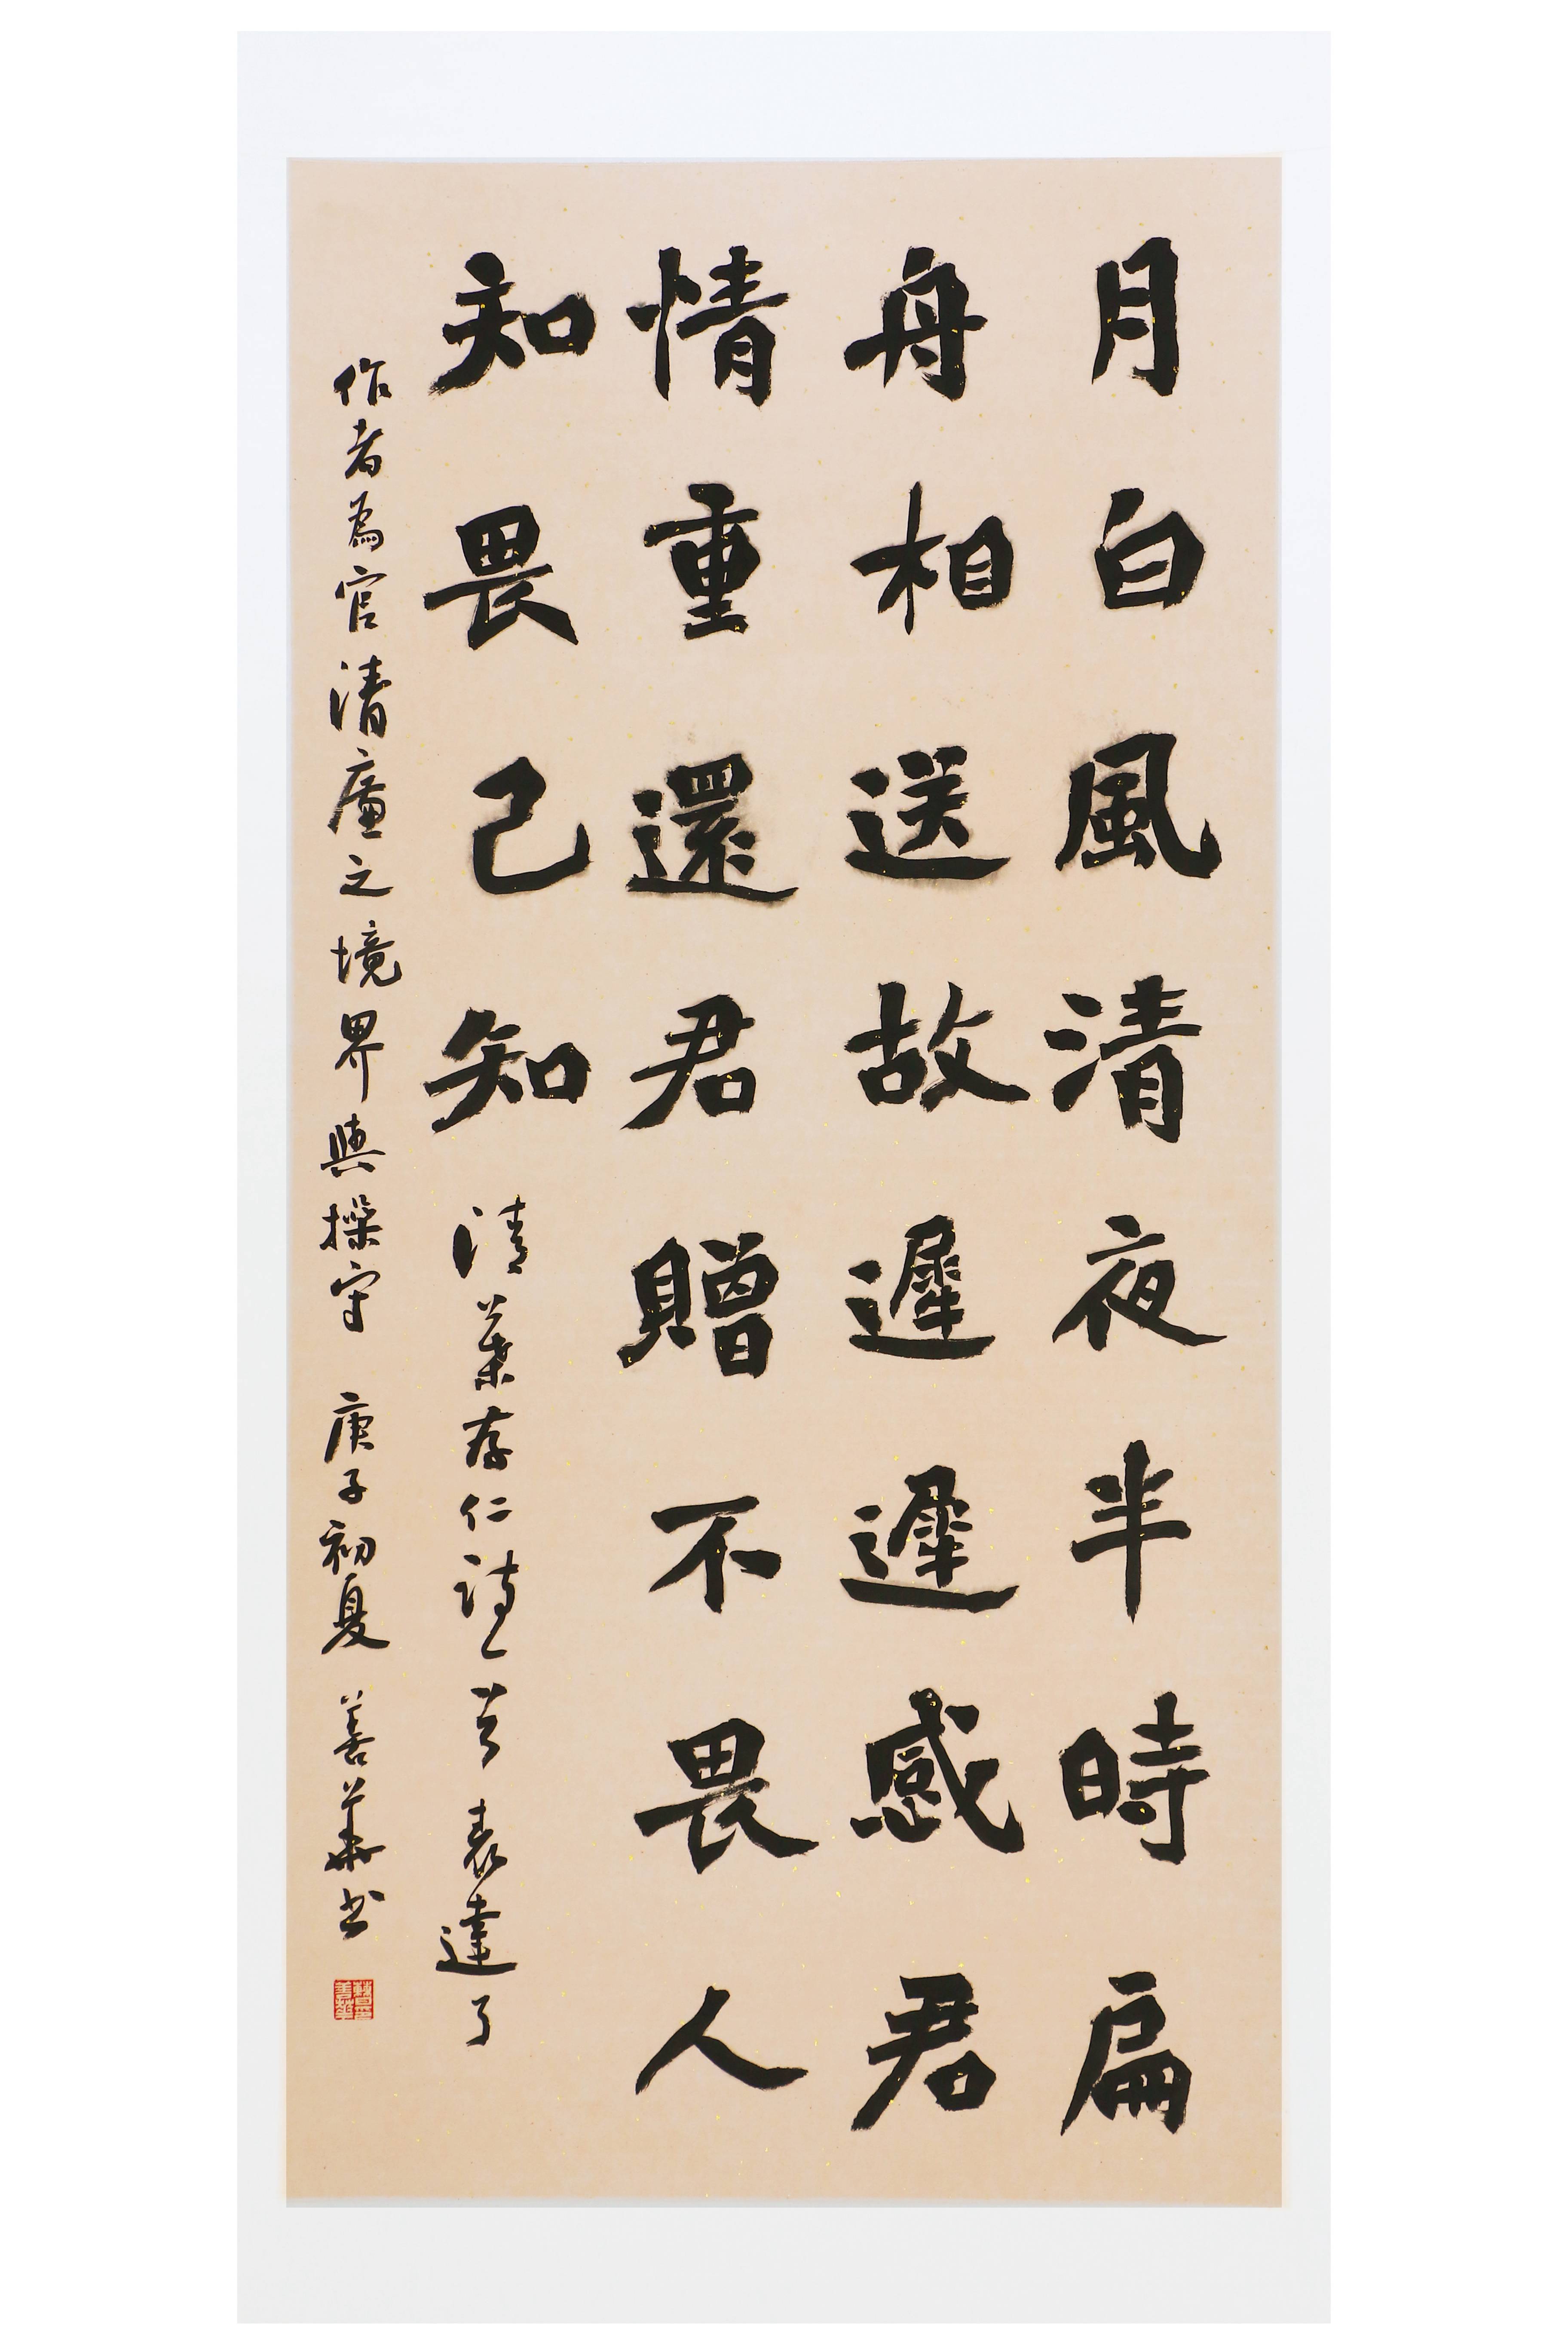 月白風清夜半時扁
舟相送故遲遲感君
情重還君贈不畏人
知畏己知
清葉存仁詩一首表達了
作者為官清廉之境界與操守 庚子初夏 善華書